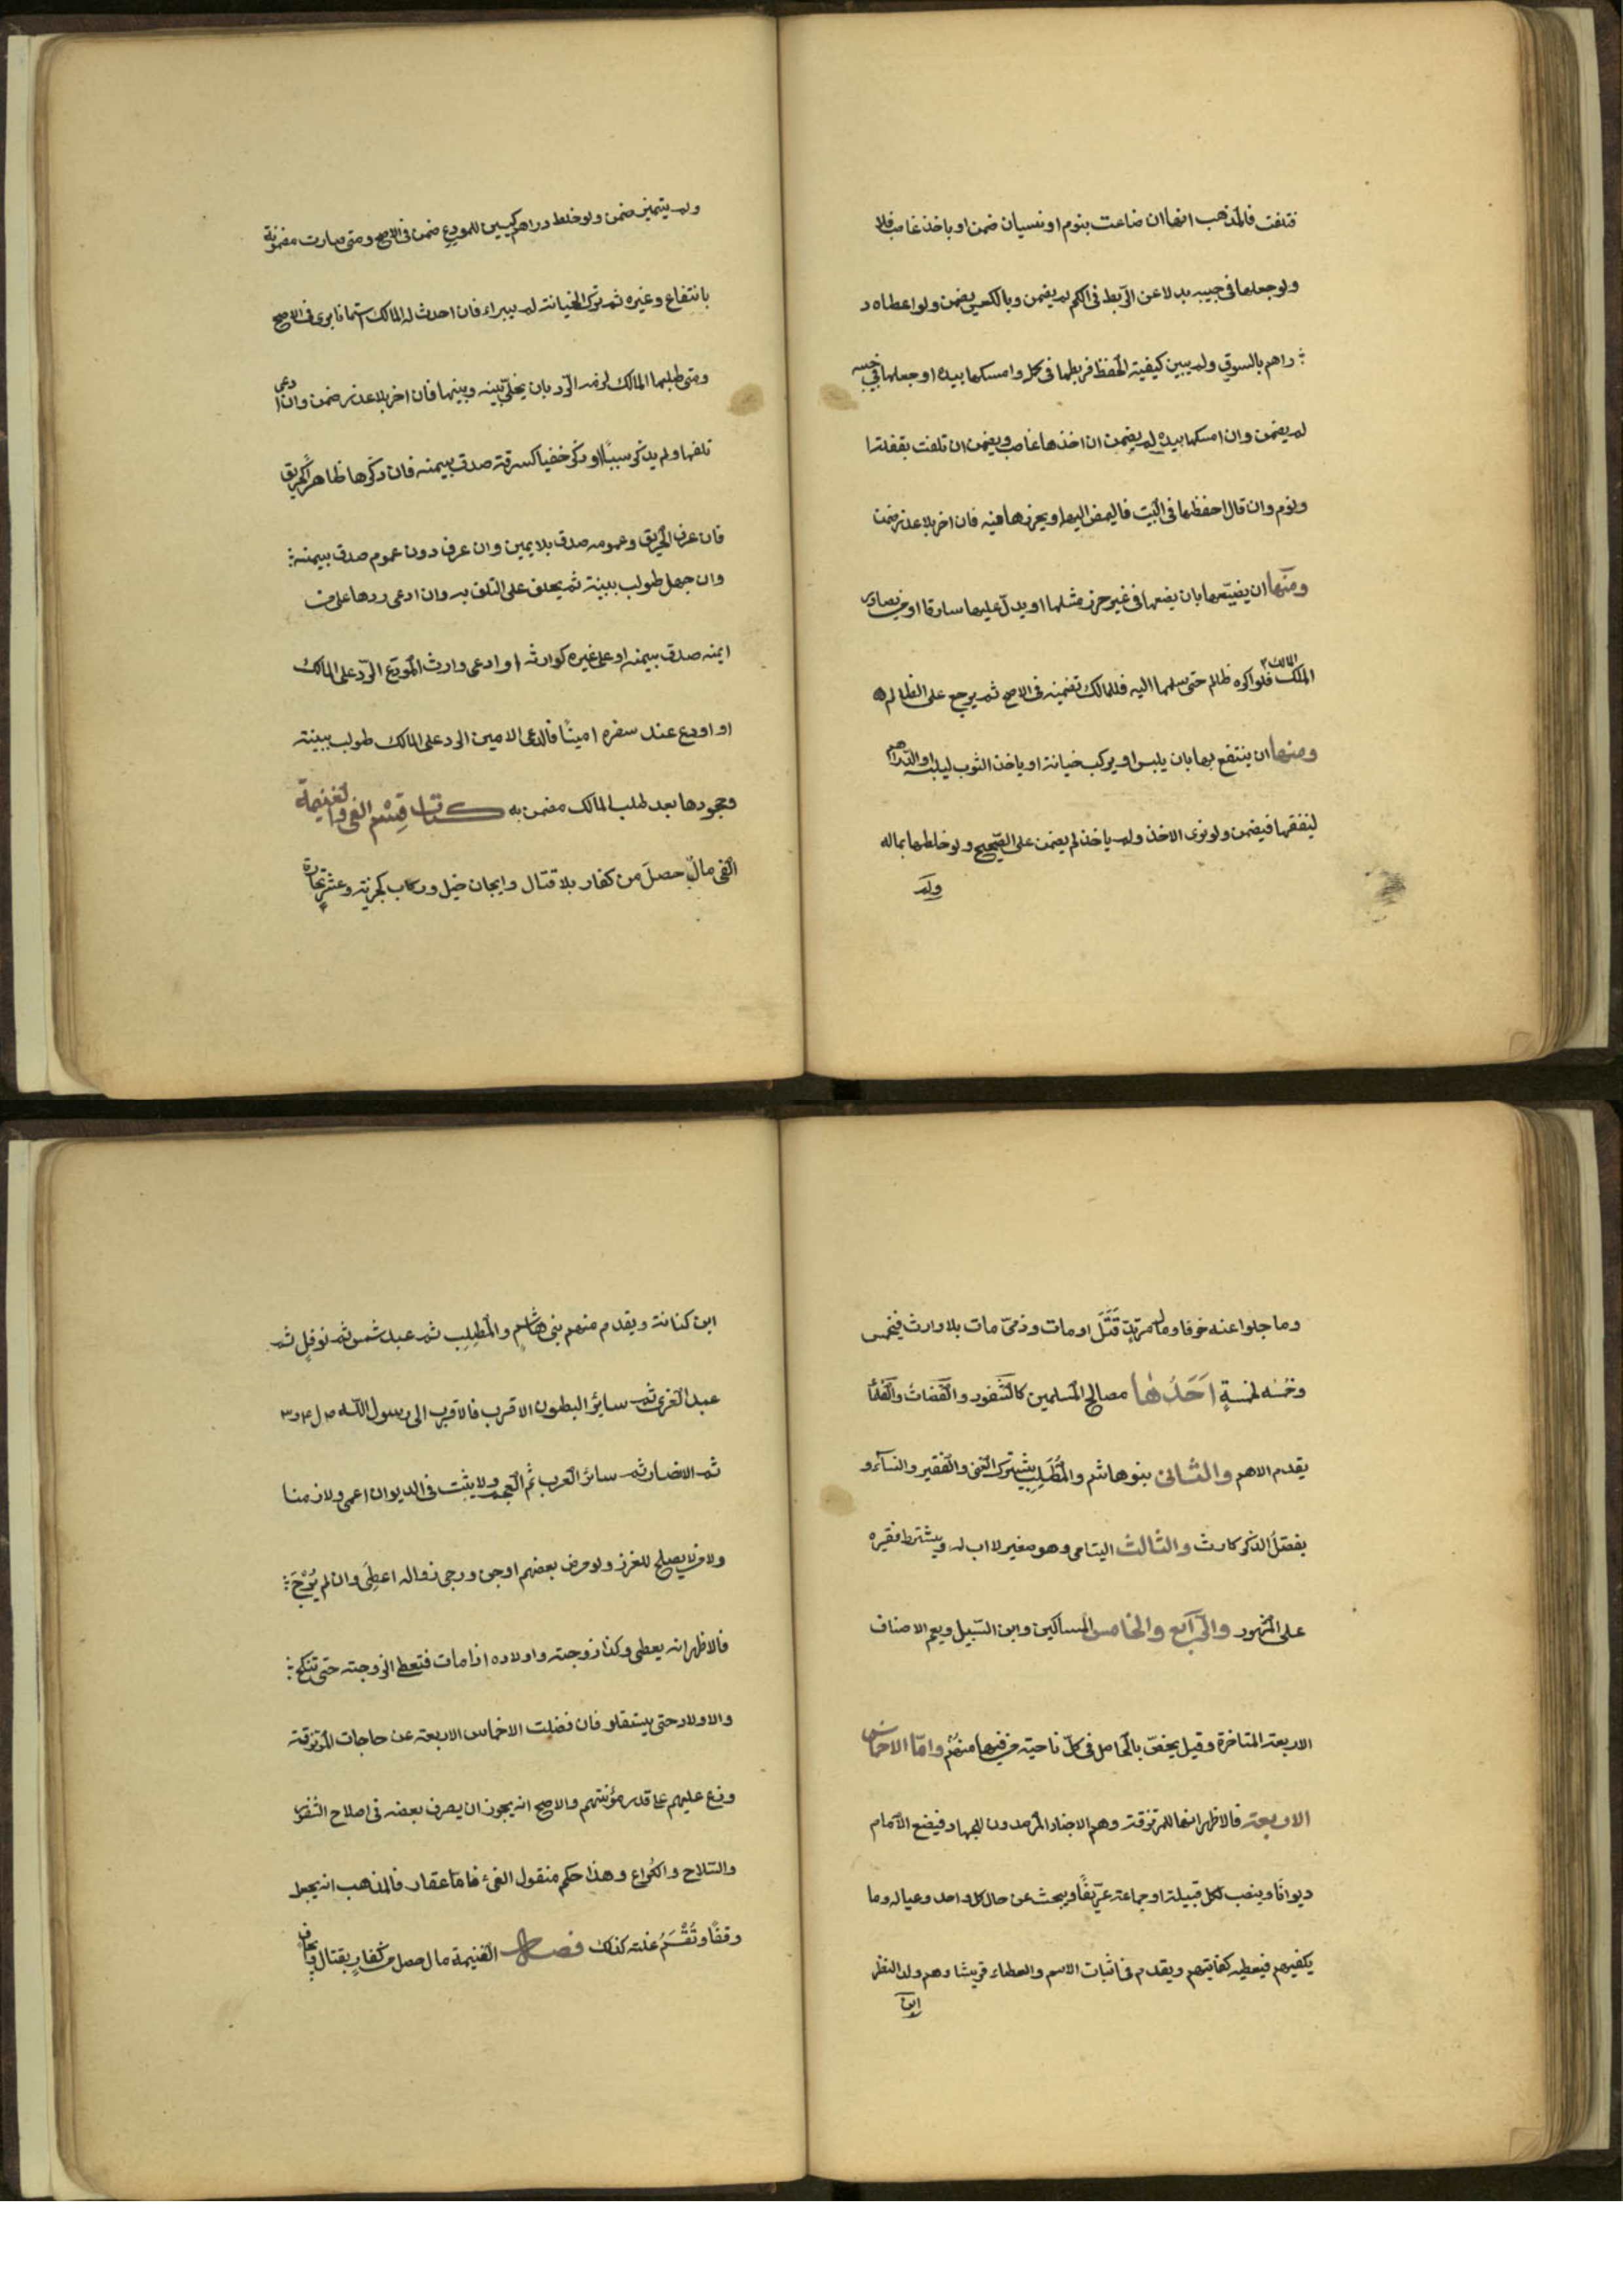 فتلفت فالمذهب انهاان ضاعت بنوم او نسيان ضمن او باخذ غاصب فلا
ولو جعلها فى جيبه بدلا عن الرّبط فى الكم لم يضمن وبالعكس يضمن ولو اعطاه د
راهم بالسوق ولم يبين كيفية الحفظ فربطها فى كمه وامسكها بيده او جعلها فى جيبه
لم يضمن وان امسكها بيده لم يضمن ان اخذها غاصب ويضمن ان تلفت بغفلة
ونوم وان قال احفظها فى البيت فاليمض اليها ويحرزها فيه فان اخر بلا عذر ضمن
ومنها ان يضيّعها بان يضعها فى غير حرز مثلها او يدلّ عليها سارقا او من يصادر
المالك فلو اكره ظالم حتى سلمها اليه فللمالك تضمينه فى الاصح ثم يرجع على الظالم
ومنها ان ينتفع بها بان يلبس او يركب خيانة او ياخذ الثوب ليلبسه او الدّراهم
لينفقها فيضمن ولو نوى الاخذ ولم ياخذ لم يضمن على الصّحيح ولو خلطها بماله
ولم
ولم يتميز ضمن ولو خلط دراهم كيسين للمودع ضمن فى الاصح ومتى صارت مضمونة
بانتفاع وغيره ثم ترك الخيانة لم يبراء فان احدث له المالك استئمانا برى فى الاصح
ومتى طلبها المالك لزمه الرّد بان يخلّى بينه وبينها فان اخر بلا عذر ضمن وان ادعى
تلفها ولم يذكر سببًا او ذكر خفيا كسرقة صدق بيمينه فان ذكرها ظاهرًا كحريق
فان عرف الحريق وعمومه صدق بلا يمين وان عرف دون عموم صدق بيمينه
وان جهل طولب ببينة ثم يحلف على التلف به وان ادعى ردها على من
ايمنه صدق بيمينه او على غيره كوارثه او ادعى وارث المودَع الرّد على المالك
او اودع عند سفره امينًا فادعى الامين الرد على المالك طولب ببينة
وجحودها بعد طلب المالك مضمن به كتاب قِسْم الفئ والغنيمة
الفى مالٌ حصلَ من كفار بلا قتال وايجاف خيل وركاب كجزية وعشر تجارة
وما جلوا عنه خوفا ومال مرتدٍ قُتَل او مات وذمىّ مات بلا وارث فيخمس
وخمسه لخمسةٍ اَحَدُهَا مصالح المسلمين كالثغور والقضاتُ والعلمأ
يقدم الاهم والثانى بنو هاشم والمُطَلِب يشترك الغنى والفقير والنسآء و
يفضّلُ الذكر كارث والثالث اليتامى وهو صغير لا اب له ويشترط فقره
على المشهور والرّابع والخامس المساكين وابن السّبيل ويعم الاصناف
الاربعة المتاخرة وقيل يخصّ بالحاصل فى كلّ ناحية من فيها منهُمْ وامّا الاخماس
الاربعة فالاظهر انها للمرتزقة وهم الاجناد المرصدون للجهاد فيضع الامام
ديوانًا وينصب لكل قبيلة او جماعة عرّيفًا ويبحث عن حال كل واحد وعياله وما
يكفيهم فيعطيه كفايتهم ويقدم فى اثبات الاسم والعطاء قريشا وهم ولد النظر
ابن
ابن كنانة ويقدم منهم بنى هاشم والمُطلِب ثم عبد شمس ثم نوفلٍ ثم
عبد العزى ثم سائر البطون الاقرب فالاقرب الى رسول اللّه ص ل ع و س
ثم الانصار ثم سائر العرب ثم العجم ولا يثبت فى الديوان اعمى ولا زمنا
ولا من لا يصلح للغزو ولو مرض بعضهم او جن ورجى زواله اعطِىَ وان لم يُرْجَ
فالاظهر انه يعطى وكذا زوجته واولاده اذا مات فتعطى الزوجة حتى تنكح
والاولاد حتى يستقلو فان فضلت الاخماس الاربعة عن حاجات المرتزقة
وزع عليهم على قدر مؤنتهم والاصح انه يجوز ان يصرف بعضه فى اصلاح الثغور
والسّلاح والكُراع وهذا حكم منقول الفئ فامّا عقار فالمذهب انه يجعل
وقفًا وتُقْسَمُ غلته كذلك فصل الغنيمة مال حصل من كفارٍ بقتال وايجاف